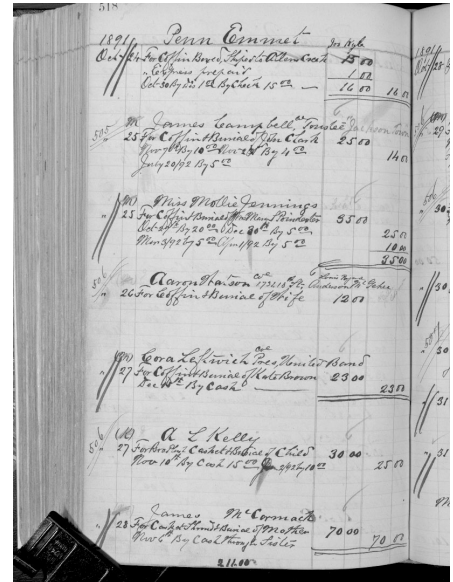 518
Penn Emmet
Jno Kyle
1891
Oct 24 For Coffin Boxed, Shiped to Allens Creek 15 00
" Express prepaid 1 00
Oct 30 By 1st By Check 15 00 16 00 16 00
505 (M) James Campbell, Trustee Jackson
25 For Coffin & Burial of Jno Clark 25 00
Nov 7th By 10 00 Nov By 4 00 14 00
July 20/92 By 5 00
(M) Miss Mollie Jennings
25 For Coffin & Burial of Mary Poindexter 35 00
Oct By 20 00 Dec 30th By 5 00 25 00
Mar 3/92 by 5 00 Apr 1/92 By 5 00 10 00
35 00
506 Aaron Watson Anderson McGehee
" 26 For Coffin & Burial of Wife 12 00
(M) Cora Leftwich Pres United Band
" 27 For Coffin & Burial of Kate Brown 23 00
Dec By Cash 23 00
506 (M) A L Kelly
" 27 For Casket & Burial of Child 30 00
Nov 10th By Cash 15 00 2/92 by 10 00 25 00
James McCormack
" 28 For Casket Shroud & Burial of Mother 70 00
Nov 6th By Cash through Sister 70 00
211.00